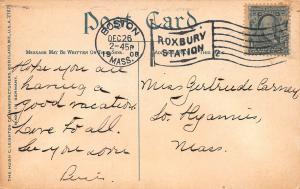 Post Card
BOSTON
DEC 26
2-45P
1908
MASS.
ROXBURY
STATION
MESSAGE MAY BE WRITTEN ON
THE HUGH C. LEIGHTON CO., MANUFACTURERS, PORTLAND, ME., U.S.A.
Hope you are
having a
good vacation.
Love to all.
See you soon
Miss Gertrude Carney
So. Hyannis,
Mass.